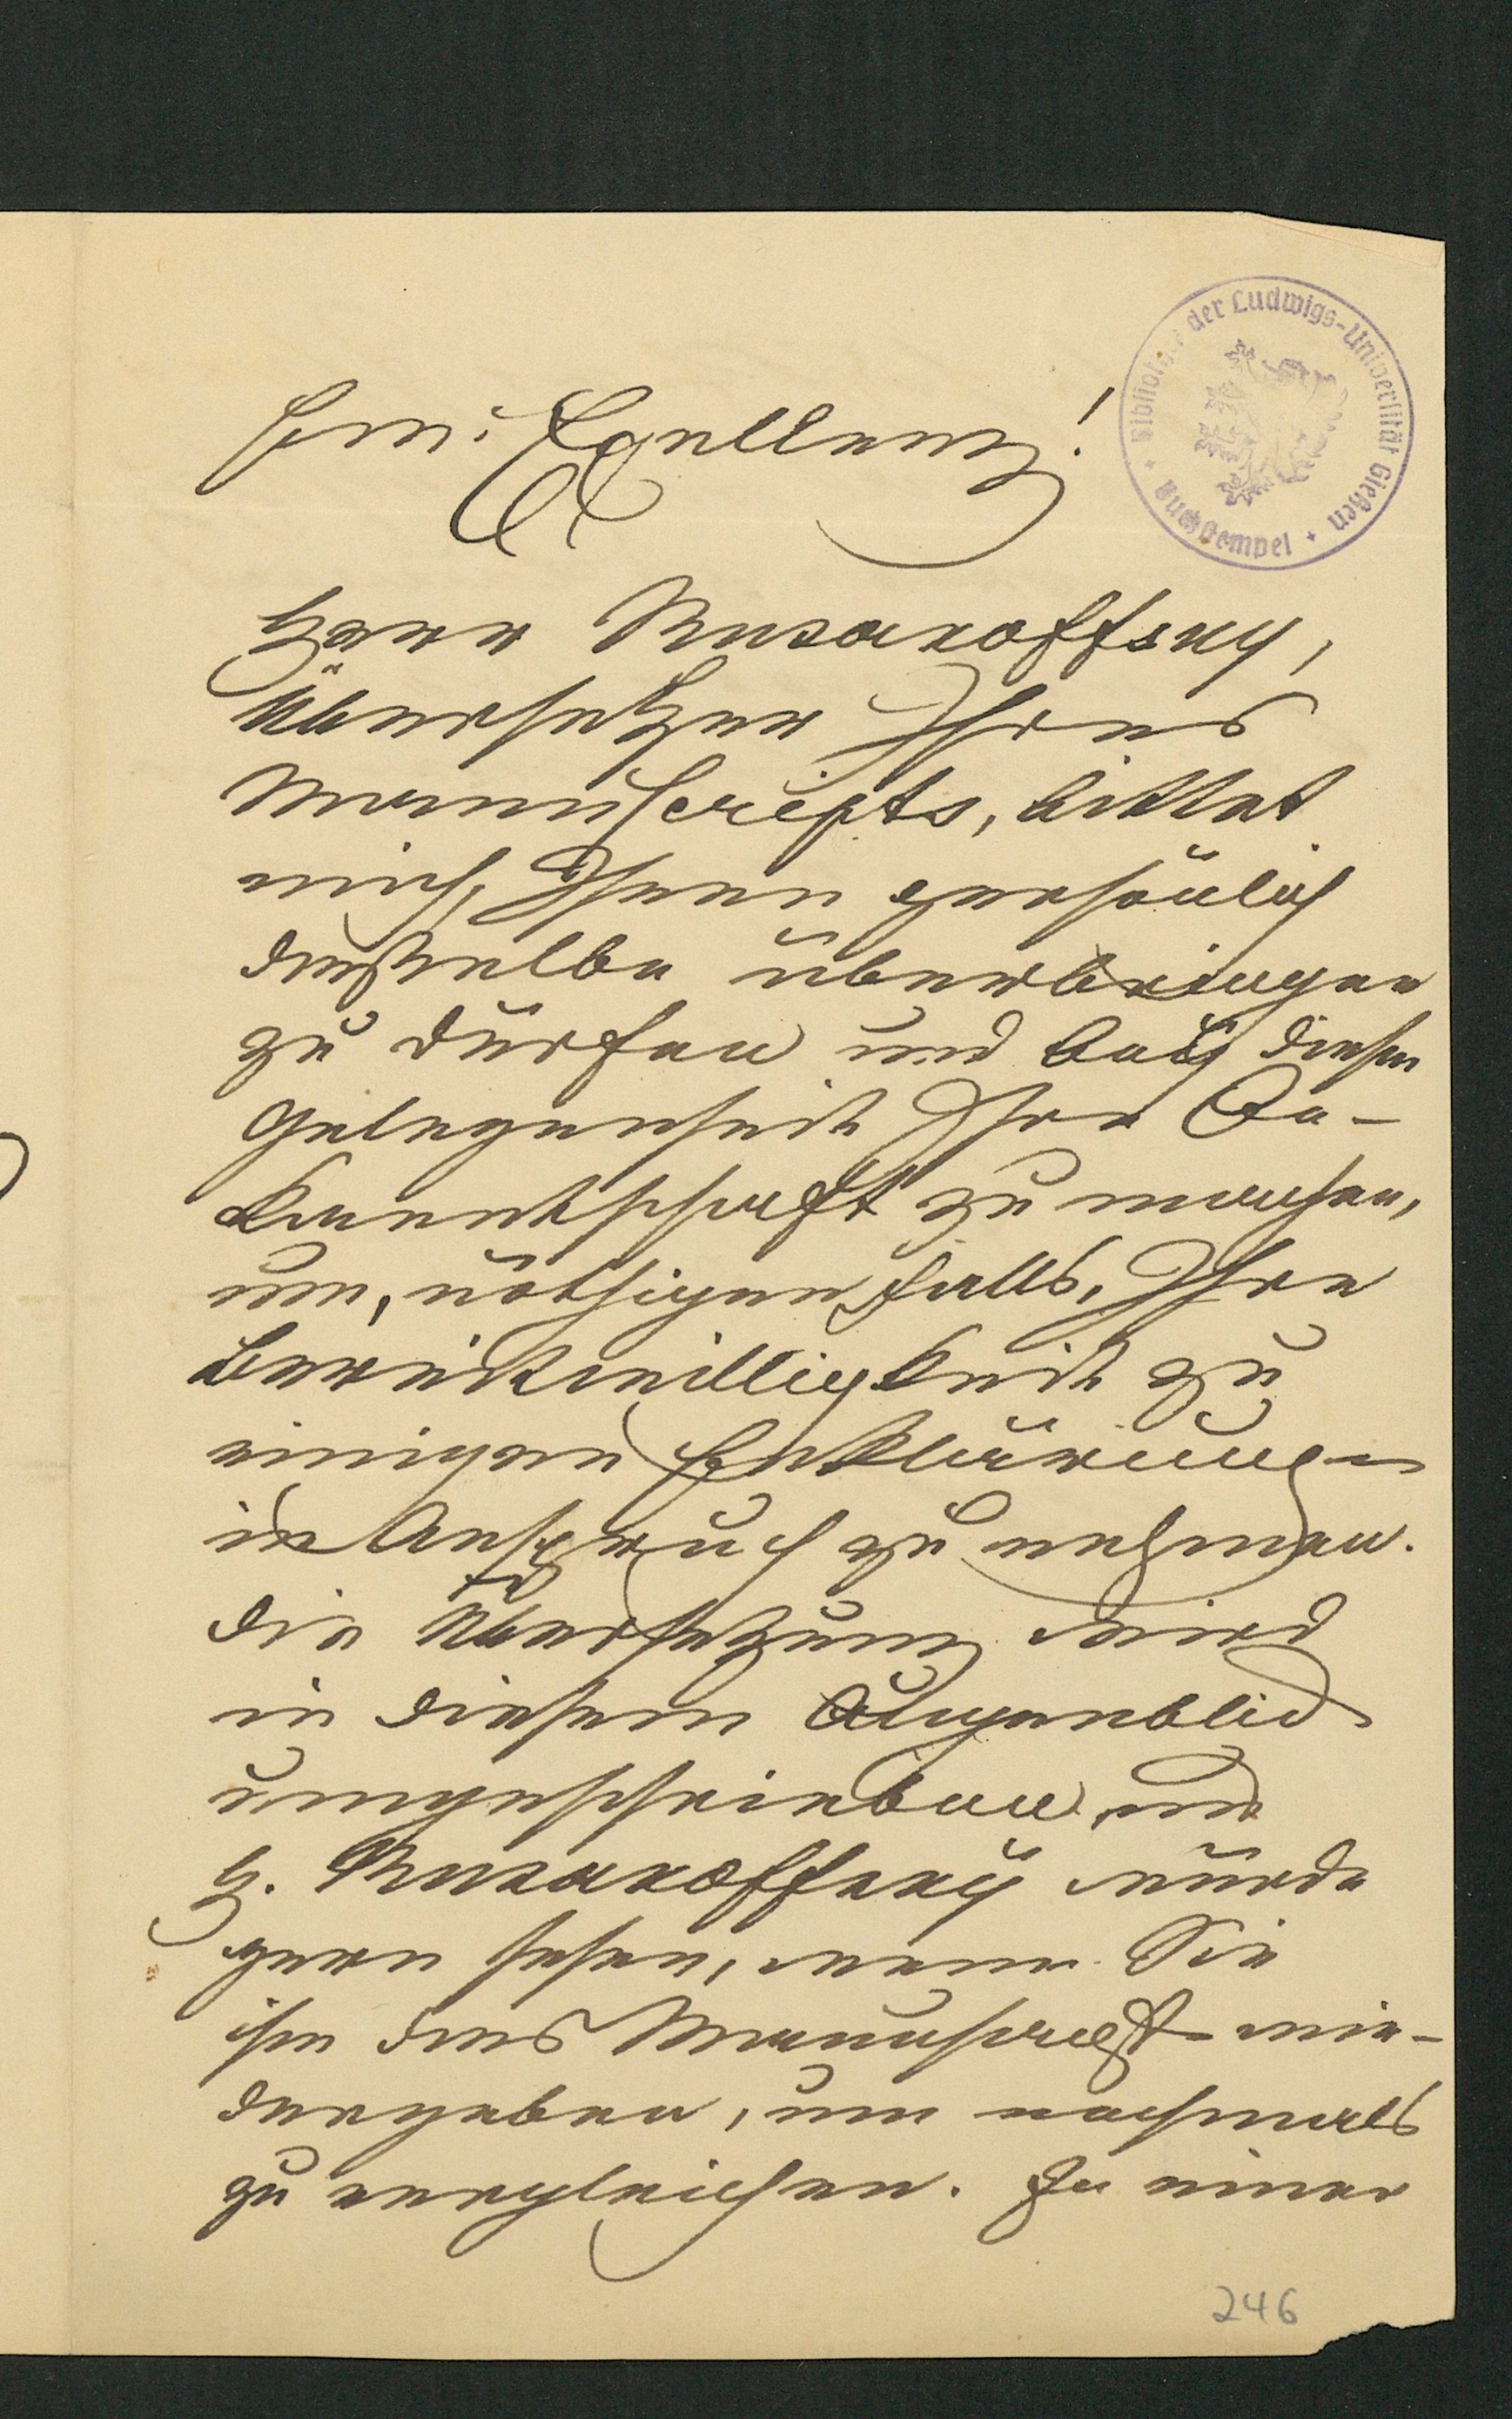 Bibliothek der Ludwigs-Universität Gießen
Buchstempel
Ew. Excellenz!
Herr Musaxoffsky,
Übersetzer Ihres
Manuscripts, bittet
mich, Ihnen persönlich
dasselbe überbringen
zu dürfen und bey dieser
Gelegenheit Ihre Be-
kanntschaft zu machen,
um, nöthigenfalls, Ihre
Bereitwilligkeit zu
einigen Erklärungen
in Anspruch zu nehmen.
Die Übersetzung wird
in diesem Augenblick
umgeschrieben und
H. Musaxoffsky würde
gern sehen, wenn Sie
ihm das Manuscript wie-
dergeben, um nochmals
zu vergleichen. In einer
246